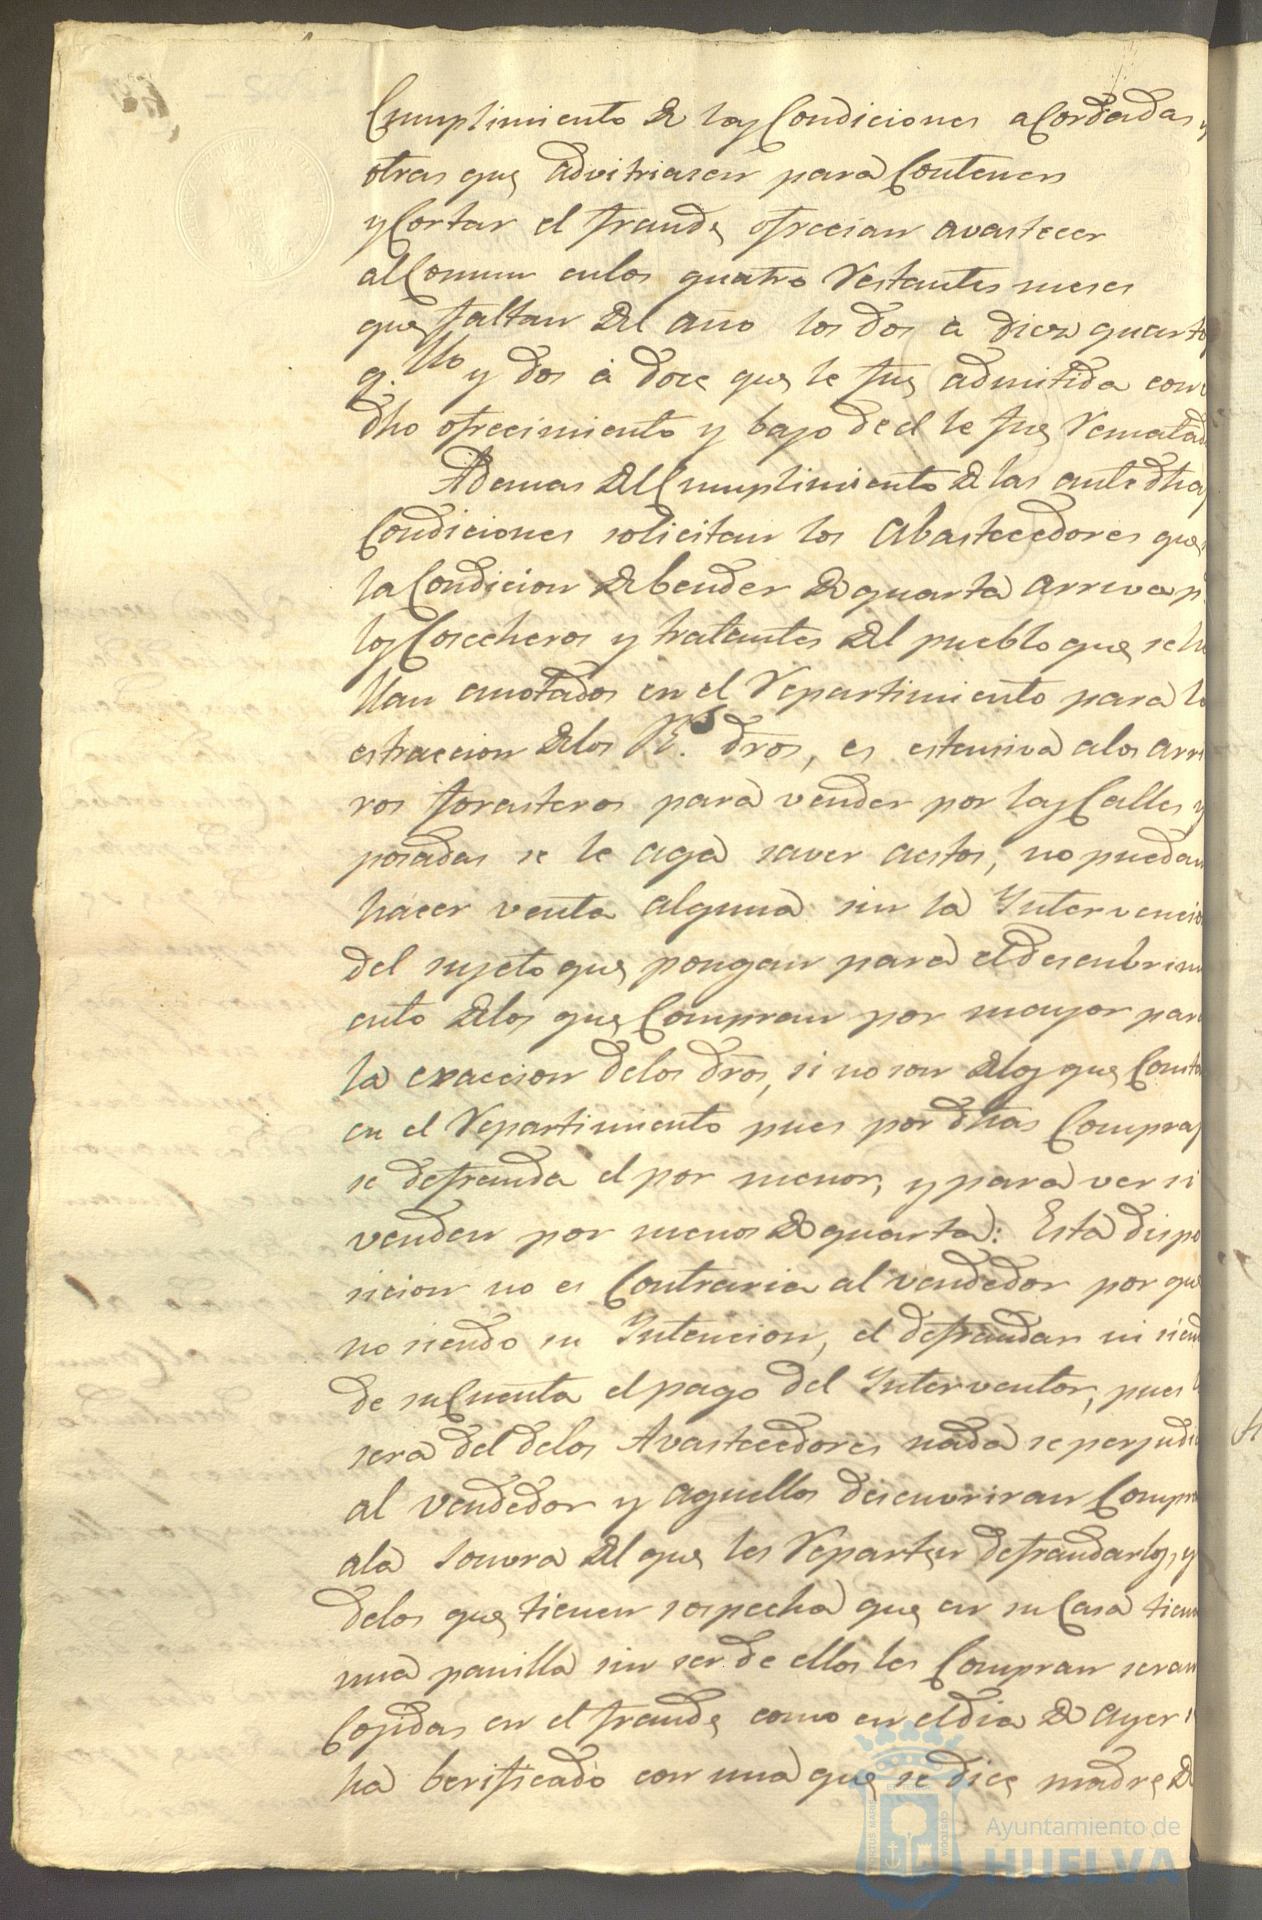 Cumplimiento de las Condiciones acordadas y
otras que advitriasen para Contener
y Cortar el fraude ofrecian avastecer
al Comun en los quatro restantes meses
que faltan del año los dos à diez quartos
q.llo y dos à doce que le fue admitida con
dho ofrecimiento y bajo de el le fue rematad
Ademas del Cumplimiento de las antedhas
Condiciones solicitan los Abastecedores que
la Condicion de bender de quarta arriva p.
los Cosecheros y tratantes del pueblo que se ha
llan anotados en el repartimiento para la
estraccion de los R.s dros, es estensiva a los arrie
ros forasteros para vender por las Calles y
posadas se le aga saver a estos, no puedan
hacer venta alguna sin la Intervencio
del sujeto que pongan para el descubrimi
ento de los que Compran por mayor para
la exaccion de los dros, si no son de los que Consta
en el repartimiento pues por dhas Compras
se defrauda el por menor, y para ver si
venden por menos de quarta: Esta dispo
sicion no es Contraria al vendedor por que
no siendo su Intencion, el defraudar ni siend
de su Cuenta el pago del Interventor, pues
sera del de los Avastecedores nada se perjudi
al vendedor y aquellos descuvriran Compr
ala sonvra del que les reparten defraudarlos, y
de los que tienen sospecha que en su Casa tiene
una panilla sin ser de ellos les Compran seran
Cojidas en el fraude como en el dia de ayer
ha berificado con una que se dice madre de
Ayuntamiento de
HUELVA